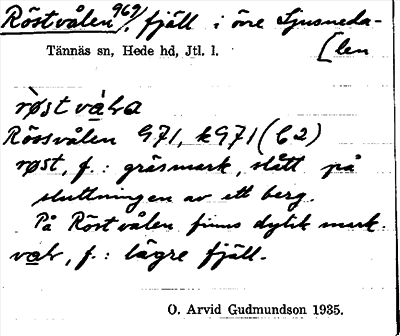 Röstvålen 969/, fjäll i övre Ljusneda-
[len
Tännäs sn, Hede hd, Jtl. l.
røst våla
Rössvålen G71, kG71 (C2)
røst, f.: gräsmark, slått på
sluttningen av ett berg.
På Röstvålen finns dylik mark.
val, f.: lägre fjäll.
O. Arvid Gudmundson 1935.